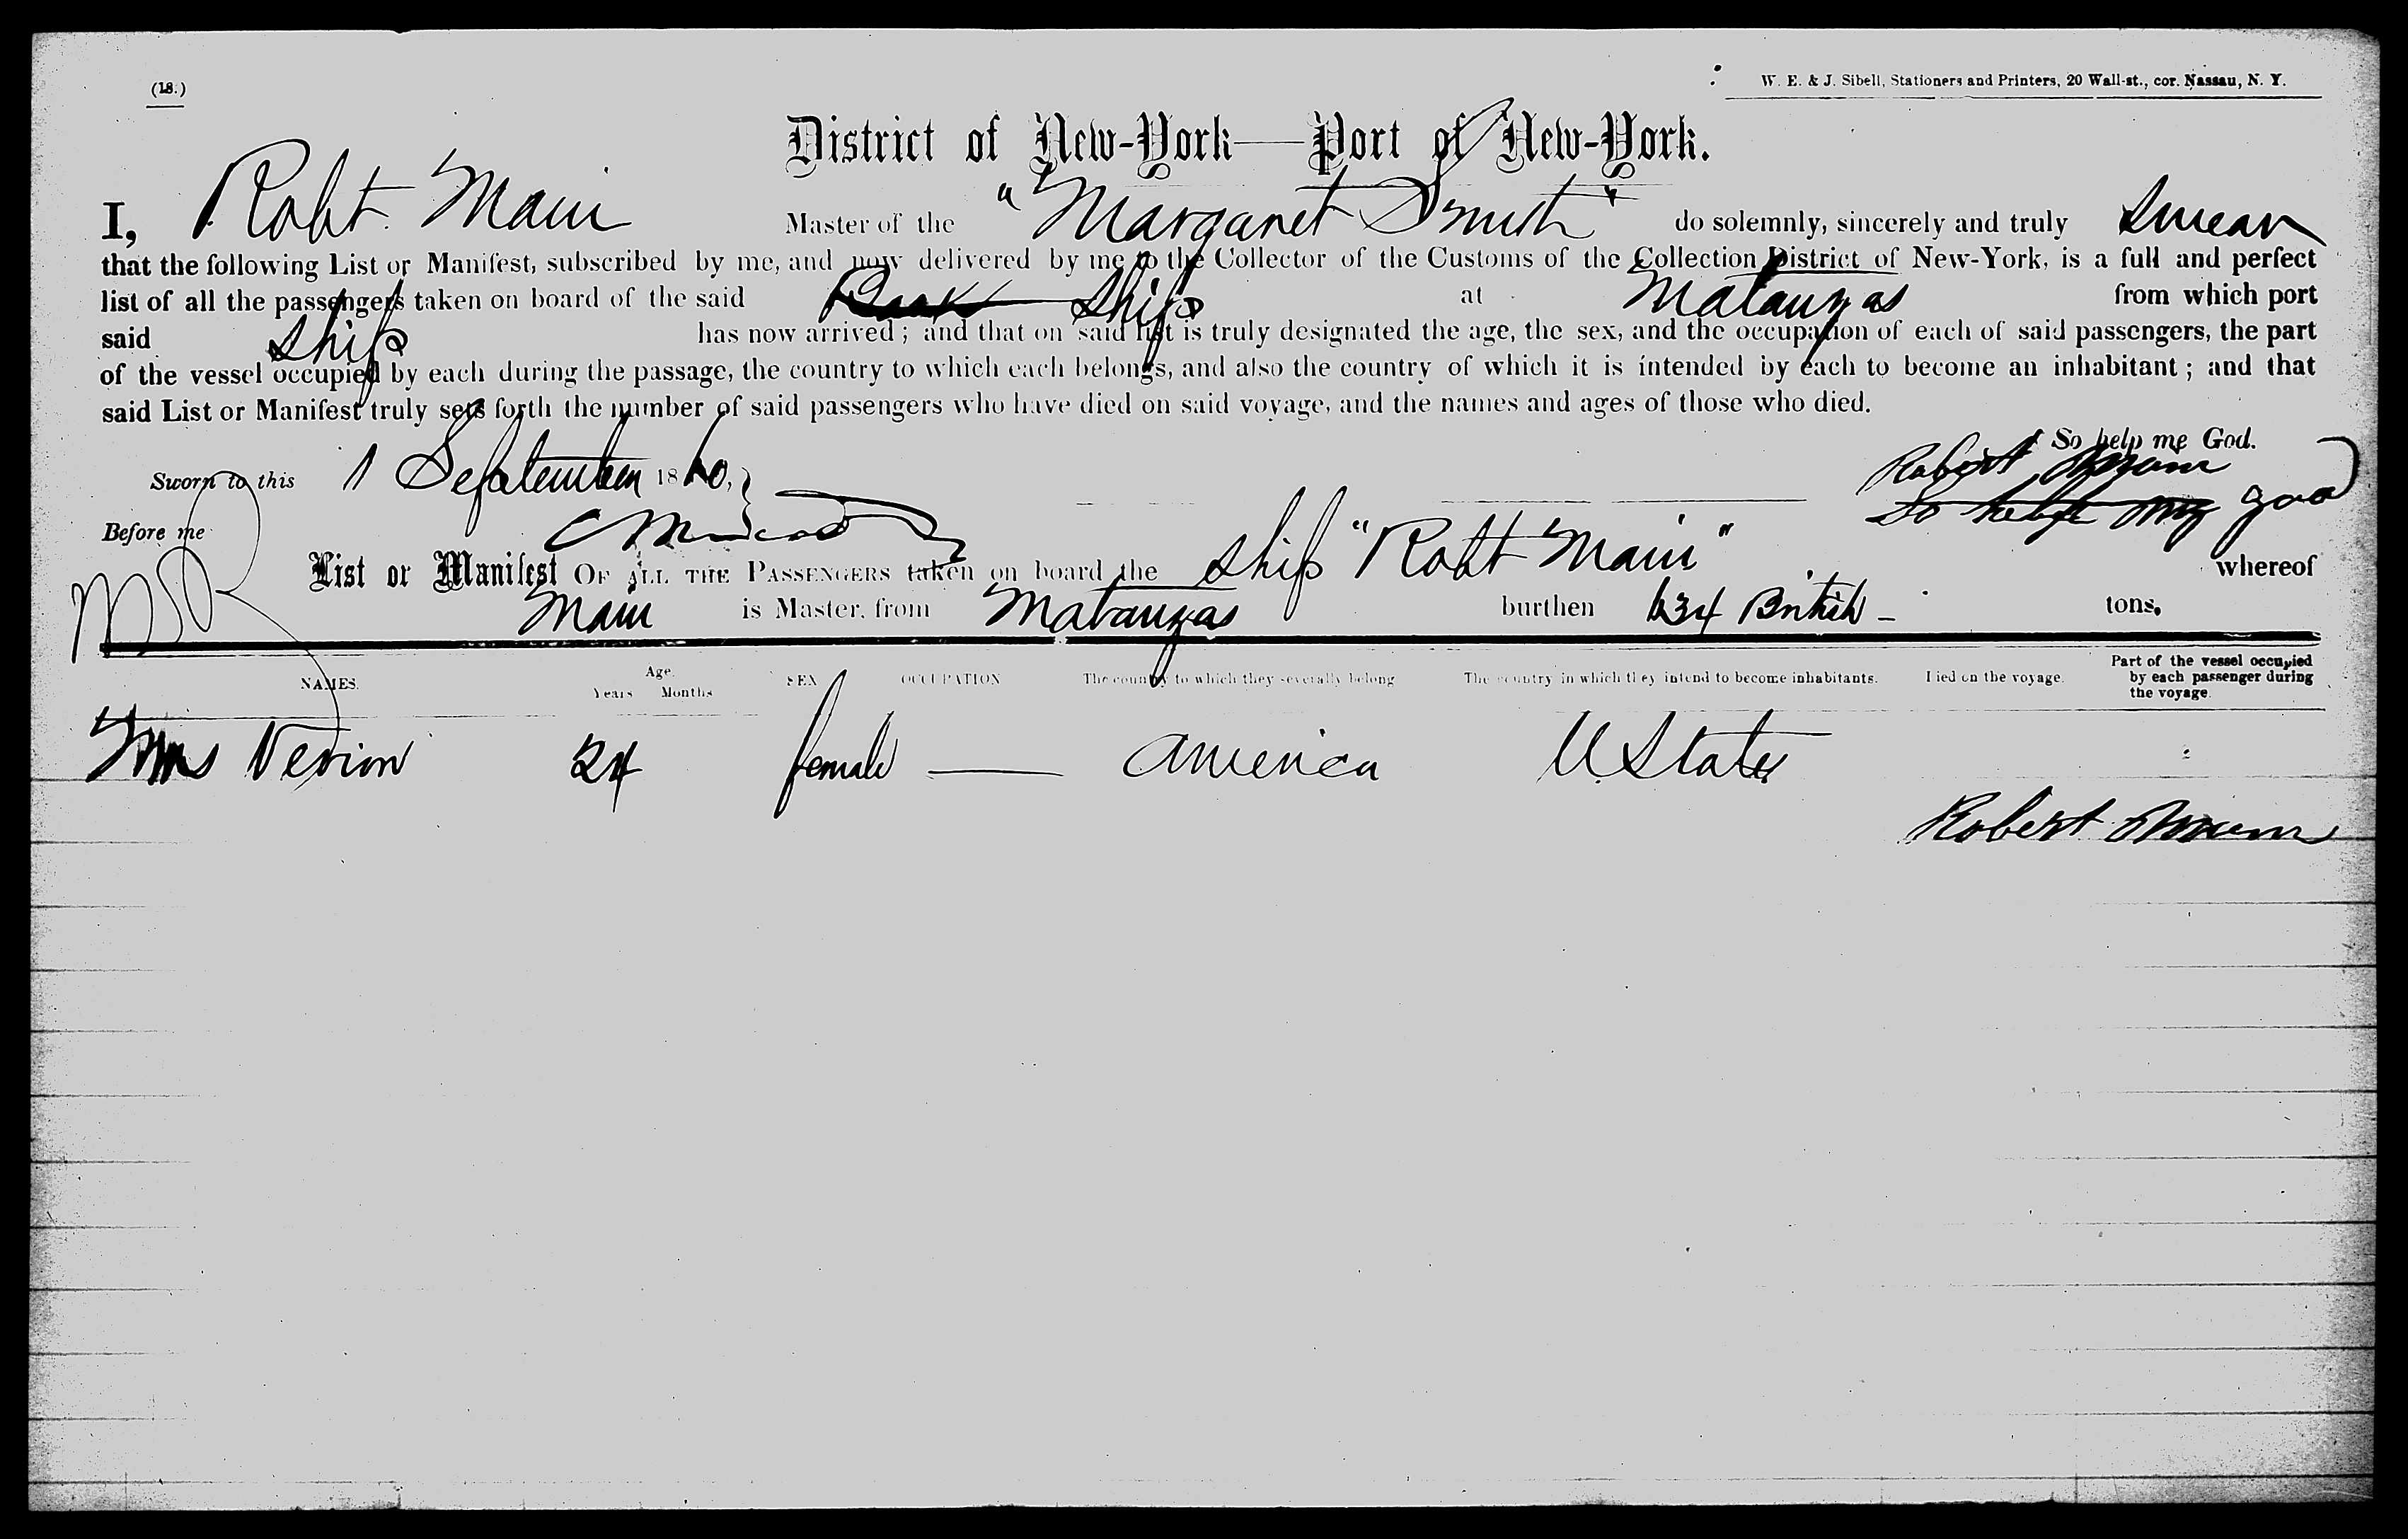 (18.)
W. E. & J. Sibell, Stationers and Printers, 20 Wall-st., cor. Nassau, N. Y.
District of New-York—Port of New-York.
I, Robt. Main Master of the "Margaret Smith" do solemnly, sincerely and truly swear
that the following List or Manifest, subscribed by me, and now delivered by me to the Collector of the Customs of the Collection District of New-York, is a full and perfect
list of all the passengers taken on board of the said Bark Ship at Matanzas from which port
said Ship has now arrived; and that on said list is truly designated the age, the sex, and the occupation of each of said passengers, the part
of the vessel occupied by each during the passage, the country to which each belongs, and also the country of which it is intended by each to become an inhabitant; and that
said List or Manifest truly sets forth the number of said passengers who have died on said voyage, and the names and ages of those who died.
So help me God.
Sworn to this 1 September 1860, Robert Main
So help my god
Before me
List or Manifest OF ALL THE PASSENGERS taken on board the Ship "Robt Main" whereof
Main is Master, from Matanzas burthen 634 British - tons.
NAMES. Age. Years Months SEX OCCUPATION The country to which they severally belong The country in which they intend to become inhabitants. Died on the voyage. Part of the vessel occupied by each passenger during the voyage.
Mrs 24 female — America U. States
Robert Main